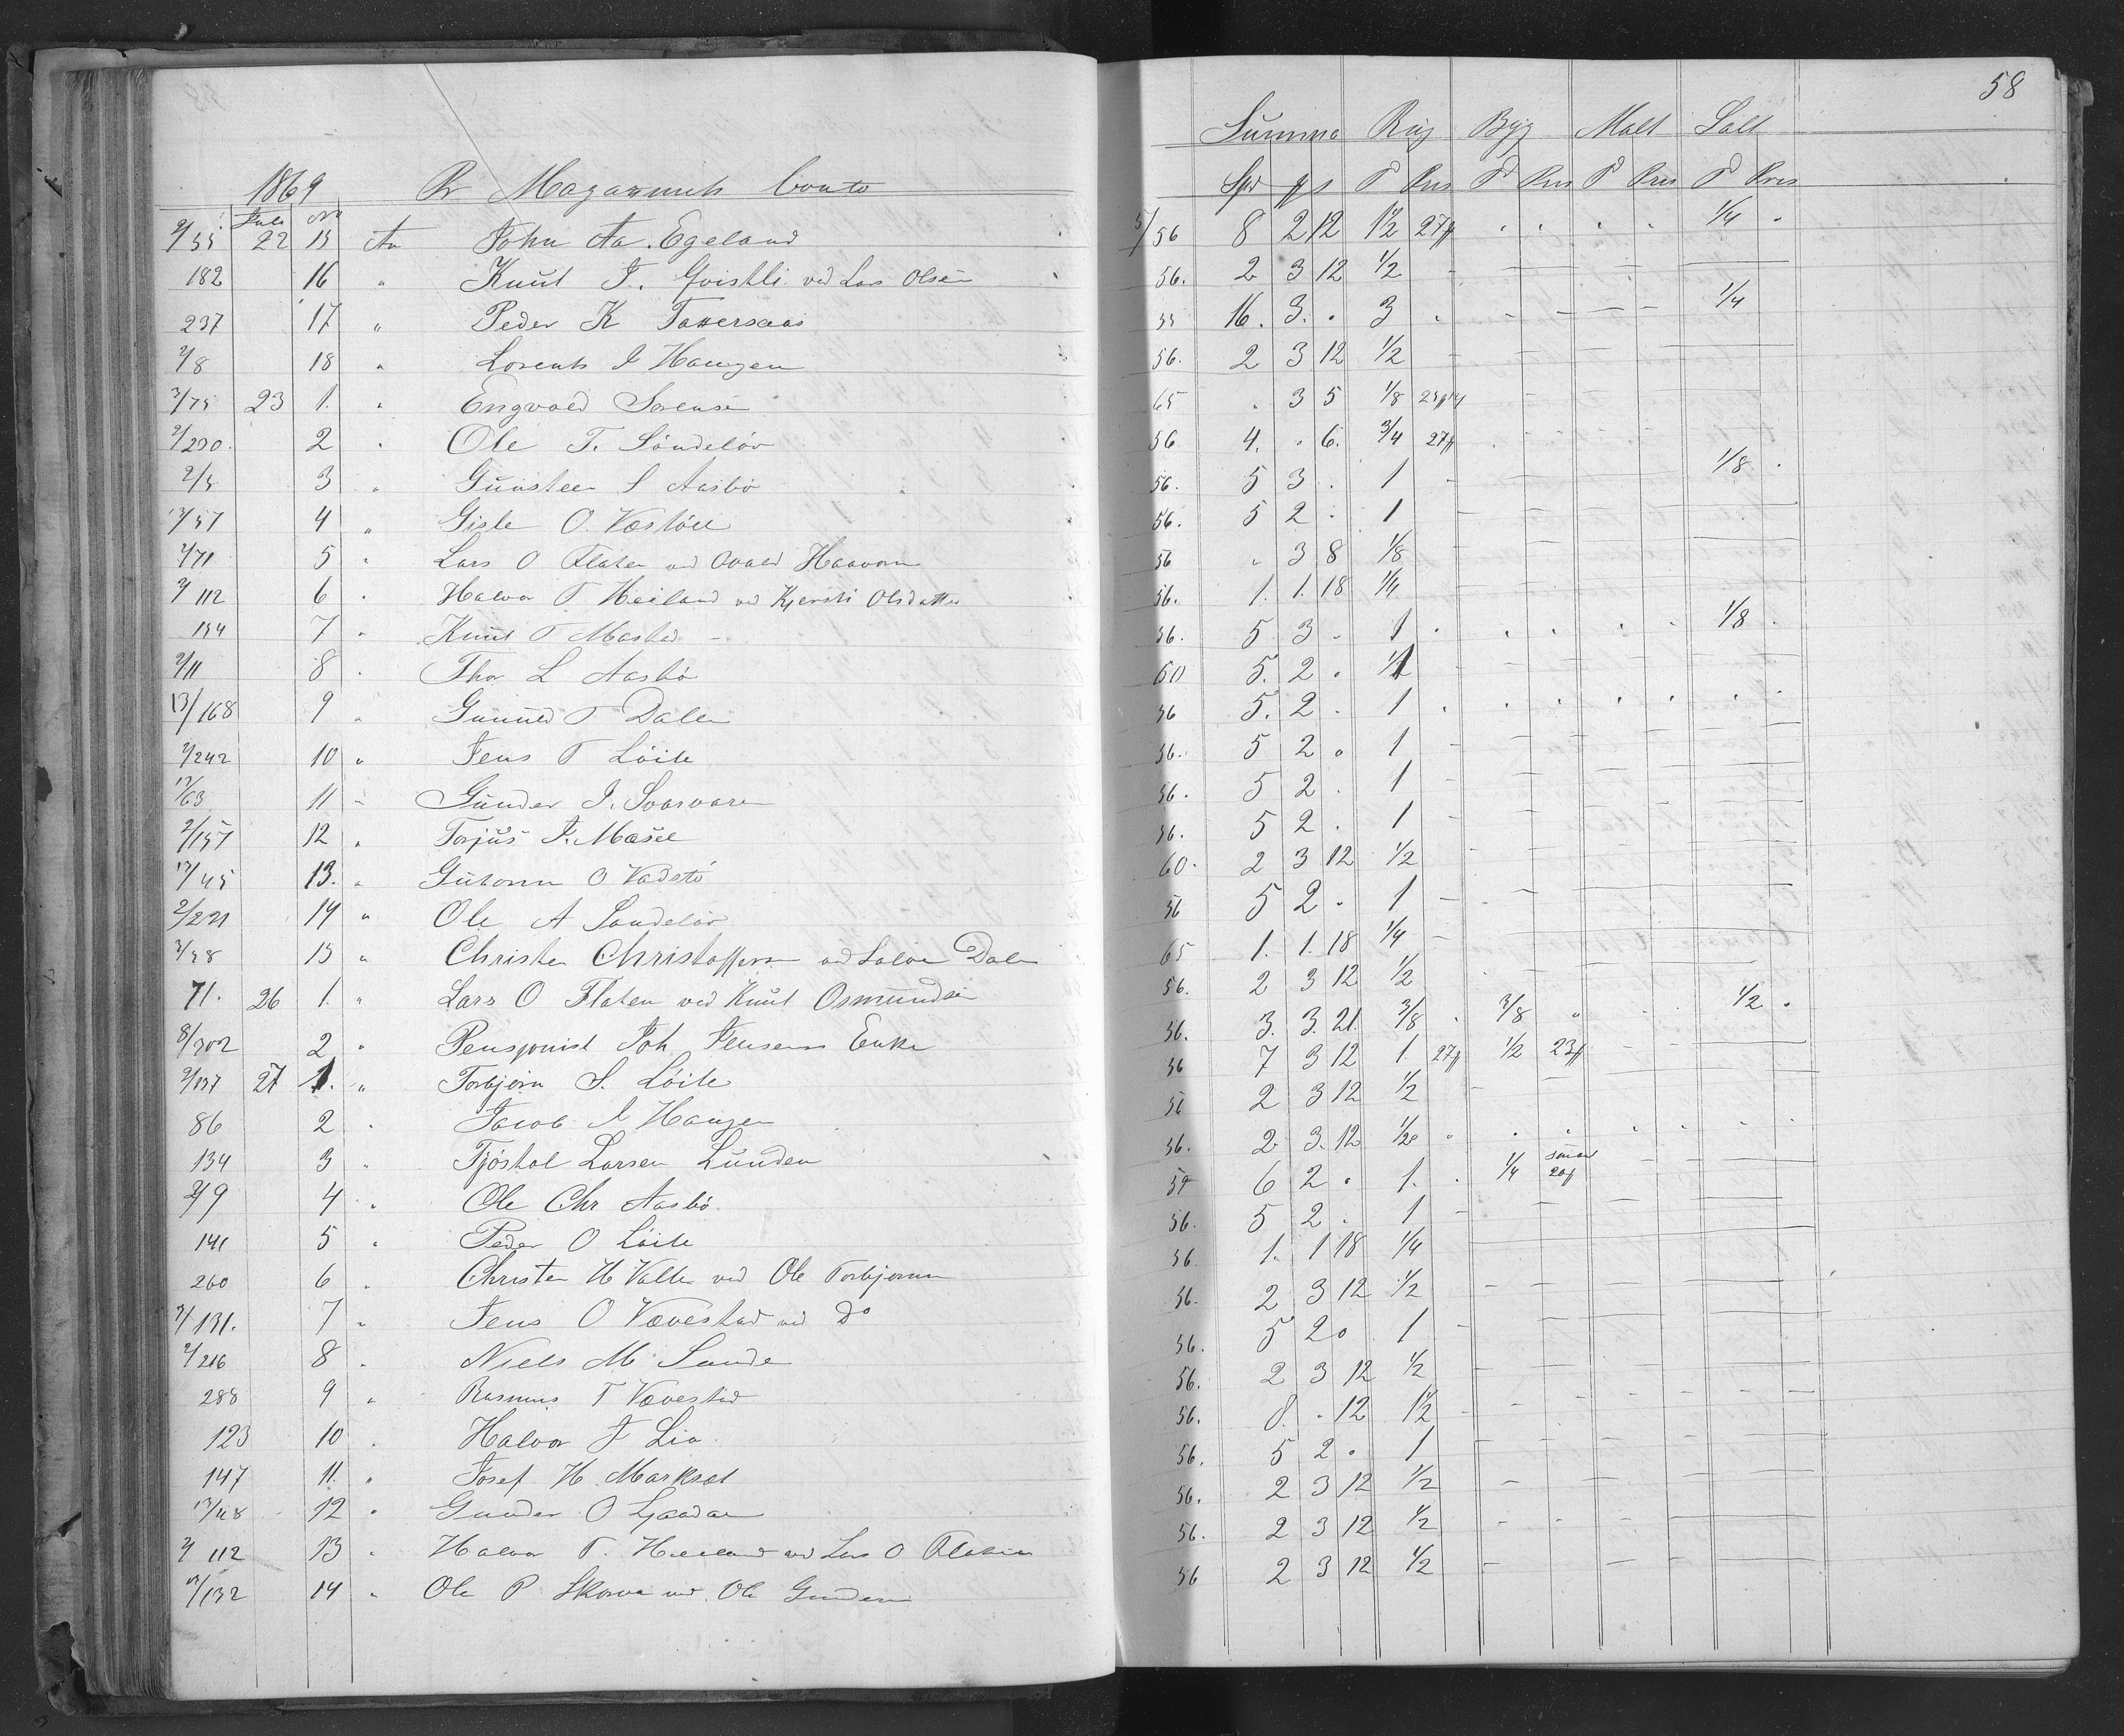 58
1869 Pr Magazinets Conto Summa Rug Byg Malt Salt
Juli No Spd # s Td Pris Td Pris Td Pris Td Pris
2/55 22 15 An John Aa. Egeland 5/56 8 2 12 1½ 27# 1/4
182 16 " Knut J. Gvistli ved Lars Olsen 56. 2 3 12 1/2
237 17 " Peder K 55 16. 3. . 3 . 1/4
2/8 18 " Lorents J Haugen 56. 2 3 12 1/2
3/75 23 1. " Engvald Sørensen 65 . 3 5 1/8
2/230. 2 " Ole T. Söndelöv 56 4. . 6. 3/4 27#
2/5 3 " Gunsteen S Aasbö 56. 5 3 . 1 1/8
13/57 4 " Gisle O. 56. 5 2 . 1
2/71 5 " Lars O Flaten ved 56 " 3 8 1/8
2/112 6 " Halvor T Heiland ved Kjersti Olsdatter 56. 1. 1. 18 1/4
154 7 " Knut T 56. 5 3 . 1 1/8
2/11 8 . Thor L Aasbö 60 5. 2 . 1
13/168 9 " Gunuld T Dalen 56 5. 2 . 1
2/242 10 " Jens T Löite 56. 5 2 . 1
13/63 11 " Gunder J. Svarvaren 56. 5 2 . 1
2/157 12 " Torjus J. 56. 5 2 . 1
13/45 13. " Gutorm O Vadstö 60. 2 3 12 1/2
2/221 14 " Ole A Söndelöv 56 5 2 . 1
3/58 15 " Christen Christoffersen ved Dalen 65 1. 1. 18 1/4
71. 26 1. " Lars O Flaten ved Knut Osmundsen 56. 2 3 12 1/2
8/302 2 " Pensjonist Joh Jensens Enke 56. 3. 3. 21. 3/8 . 3/8 " 1/2
2/137 27 1. " Torbjörn S. Löite 56 7 3 12 1. 27# 1/2 23#
86 2 . Jacob J Haugen 56 2 3 12 1/2
134 3 " Tjöstol Larsen Lunden 56. 2 3. 12 1/2
2/9 4 " Ole Chr Aasbö. 59 6 2 . 1. . 1/4
141 5 " Peder O Löite 56. 5 2 . 1
260 6 " Christen H Valle ved Ole Torbjörnsen 56 1. 1 18 1/4
2/131. 7 " Jens O Vævestad ved Do 56. 2 3 12 1/2
2/216 8 . Niels M Sunde 56. 5 2 . 1
288 9 " Rasmus T Vævestad 56. 2 3 12 1/2
123 10 . Halvor J Lia 56. 8. . 12 1½
147 11. " Josef H. 56. 5 2 . 1
13/48 12 " Gunder O 56. 2 3 12 1/2
2/112 13 " Halvor T. Heiland ved Lars O Flaten 56. 2 3 12 1/2
13/132 14 " Ole P. Skorve ved Ole Gundersen 56 2 3 12 1/2